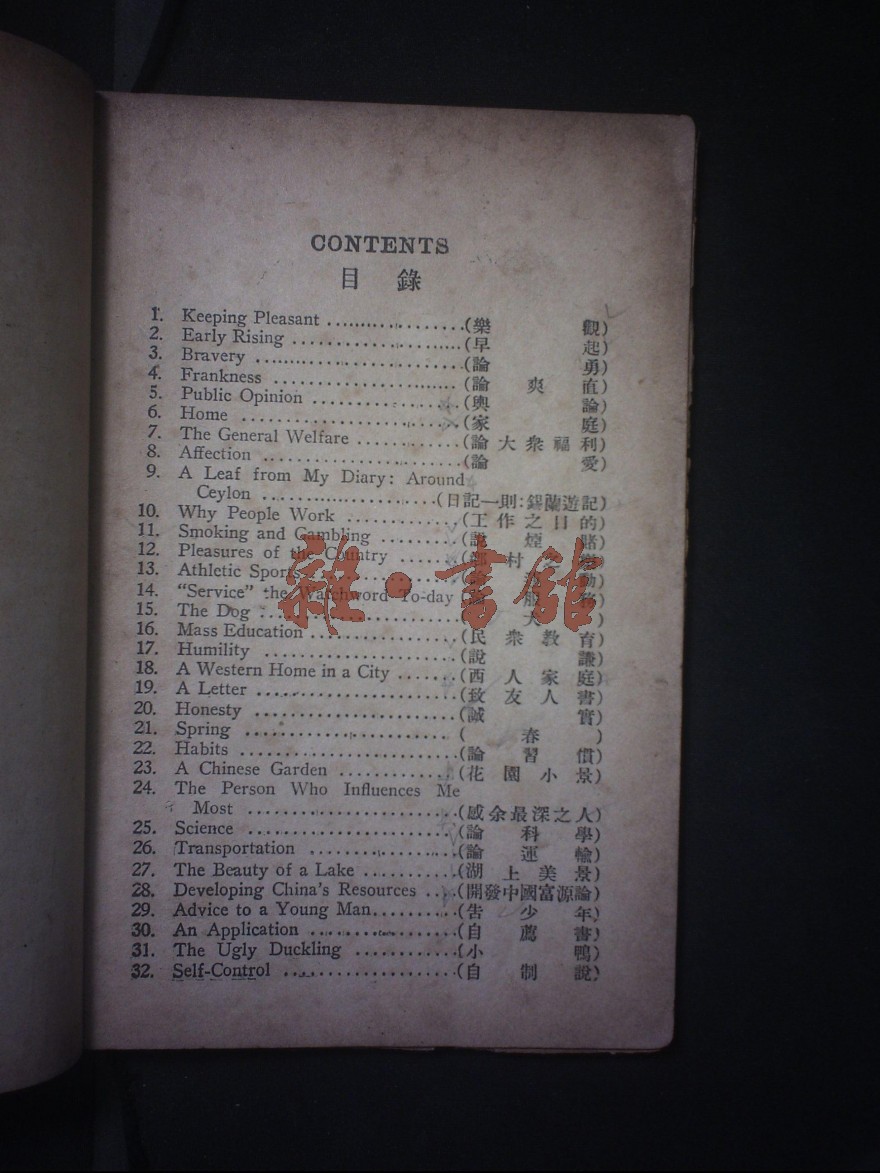 CONTENTS
目錄
1. Keeping Pleasant (樂觀)
2. Early Rising (早起)
3. Bravery (論勇)
4. Frankness (論爽直)
5. Public Opinion (輿論)
6. Home (家庭)
7. The General Welfare (論大衆福利)
8. Affection (論愛)
9. A Leaf from My Diary: Around
Ceylon (日記一則:錫蘭遊記)
10. Why People Work (工作之目的)
11. Smoking and Gambling (說煙賭)
12. Pleasures of the Country
13. Athletic Sports
14. "Service" the Watchword To-day
15. The Dog
16. Mass Education (民衆教育)
17. Humility (說謙)
18. A Western Home in a City (西人家庭)
19. A Letter (致友人書)
20. Honesty (誠實)
21. Spring (春)
22. Habits (論習慣)
23. A Chinese Garden (花園小景)
24. The Person Who Influences Me
Most (感余最深之人)
25. Science (論科學)
26. Transportation (論運輸)
27. The Beauty of a Lake (湖上美景)
28. Developing China's Resources (開發中國富源論)
29. Advice to a Young Man (告少年)
30. An Application (自薦書)
31. The Ugly Duckling (小鴨)
32. Self-Control (自制說)
雜·書館